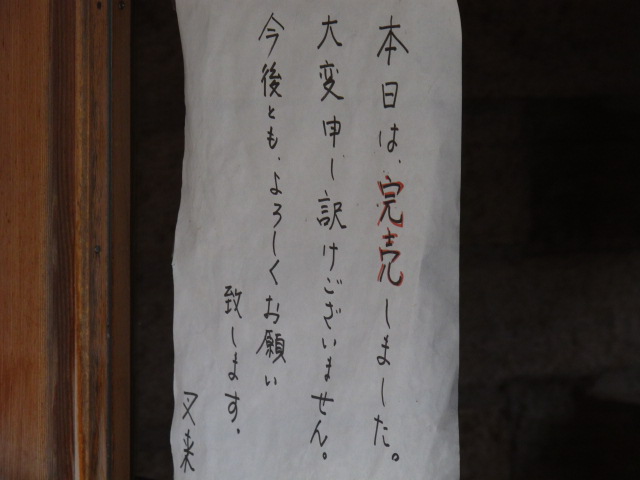 本日は、完売しました。
大変申し訳けございません。
今後とも、よろしくお願い
致します。
又来